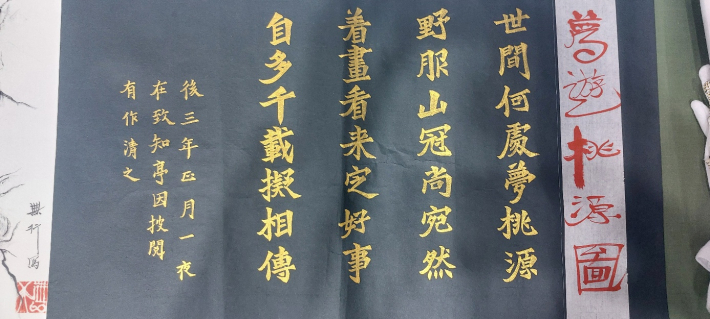 夢遊桃源圖
世間何處夢桃源
野服山冠尚宛然
着畫看来定好事
自多千載擬相傳
後三年正月一夜
在致知亭因披閱
有作清之